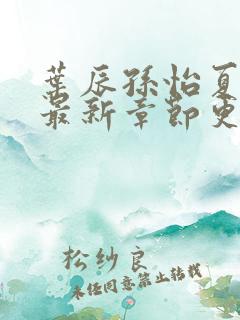 叶辰孙怡夏
最新章节更
松纱良
未经同意禁止转载